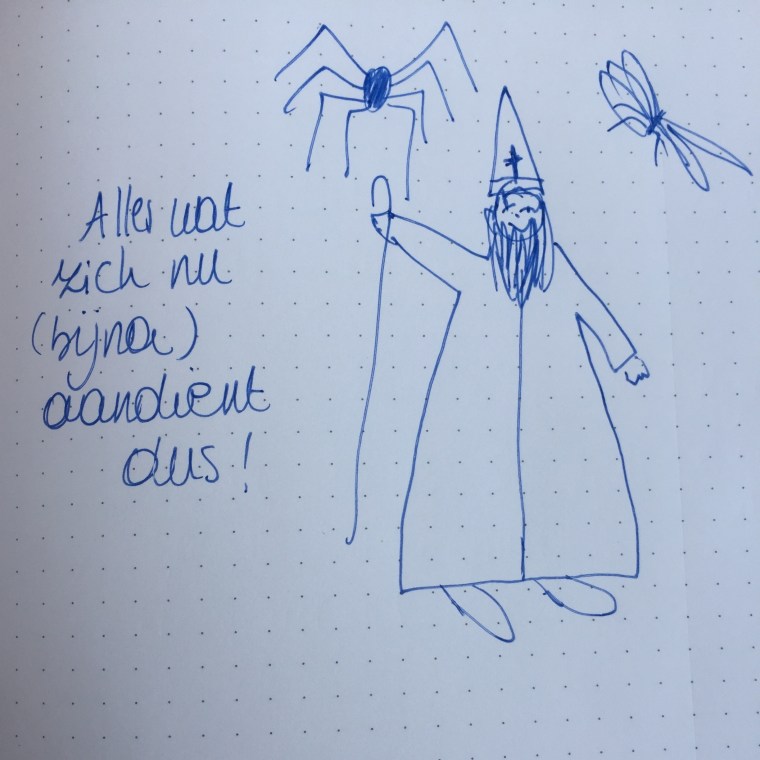 Alles wat
zich nu
(bijna)
aandient
dus!